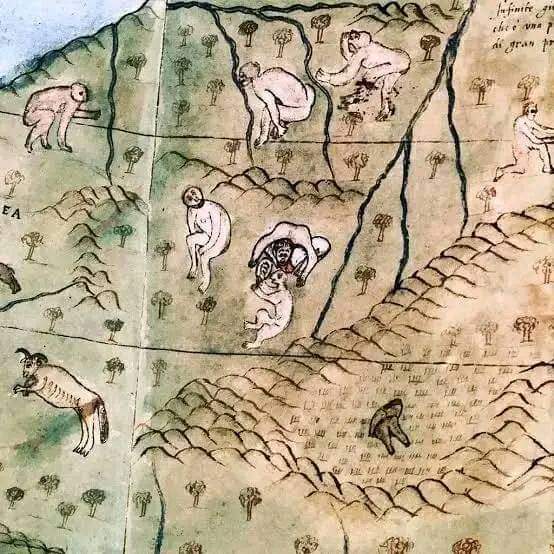 Infinite
che è una p
di gran p
EA